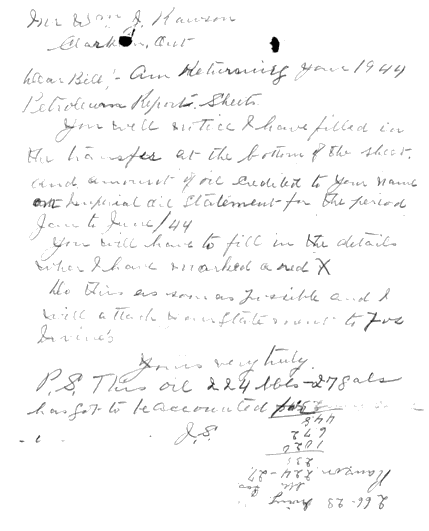 Mr Wm J. Rawson
Ont
Dear Bill:- Am Returning your 1944
Petroleum Report Sheets.
You will notice I have filled in
the transfer at the bottom of the sheet.
and amount of oil credited to your name
on Imperial Oil Statement for the period
Jan to June/44
You will have to fill in the details
where I have marked a red X
Do this as soon as possible and I
will attach statement to
Irvine's
Yours very truly
P.S. This oil 224 bbls-27 gals
has got to be accounted for
J.S.
448
672
1020
Rawson 224-27
266-23 Irving